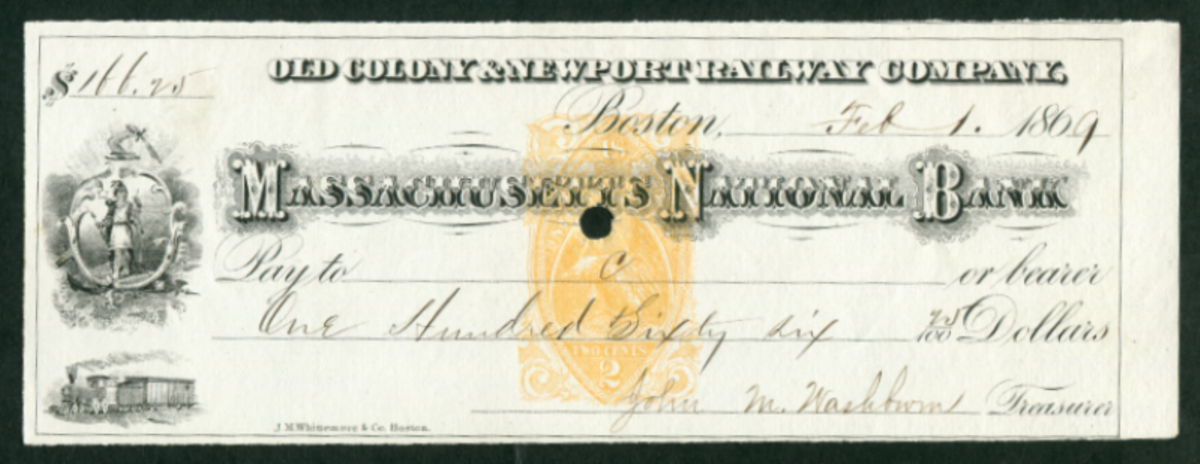 $166.25
OLD COLONY & NEWPORT RAILWAY COMPANY.
Boston, Feb 1. 1869
MASSACHUSETTS NATIONAL BANK
Pay to C or bearer
One Hundred Sixty six 25/100 Dollars
TWO CENTS
2
John M. Washburn Treasurer
J. M. Whittemore & Co. Boston.